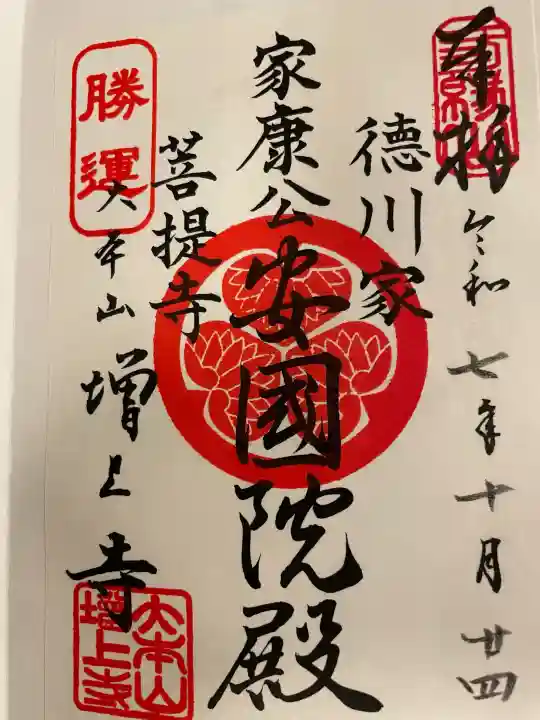 奉拝
令和七年十月廿四
徳川家
家康公
安國院殿
菩提寺
勝運
大本山
増上寺
大本山
増上寺